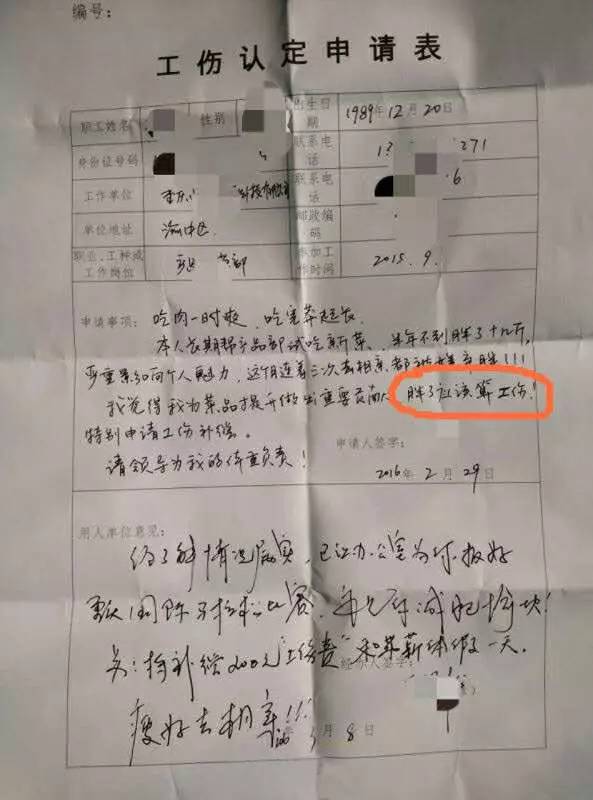 编号:
工伤认定申请表
职工姓名 性别 出生日期 1989年12月20日
身份证号码 联系电话 1 271
工作单位 重庆 科技有限 联系电话 6
单位地址 渝中区 邮政编码
职业、工种或工作岗位 部 参加工作时间 2015.9.
申请事项: 吃肉一时爽，吃完莽起长，
本人长期帮产品部试吃新菜，半年不到胖了十几斤，
严重影响个人魅力，这个月连着三次去相亲都
我觉得我为菜品提升做出重要贡献 胖了应该算工伤！
特别申请工伤补偿。
请领导为我的体重负责！
申请人签字:
2016年2月29日
用人单位意见:
经了解情况属实，已让办公室为你报好
国际马拉松比赛，
另：特补偿200元“工伤费”和带薪休假一天，
瘦好去相亲！！！
经办人签字:
年 月8日